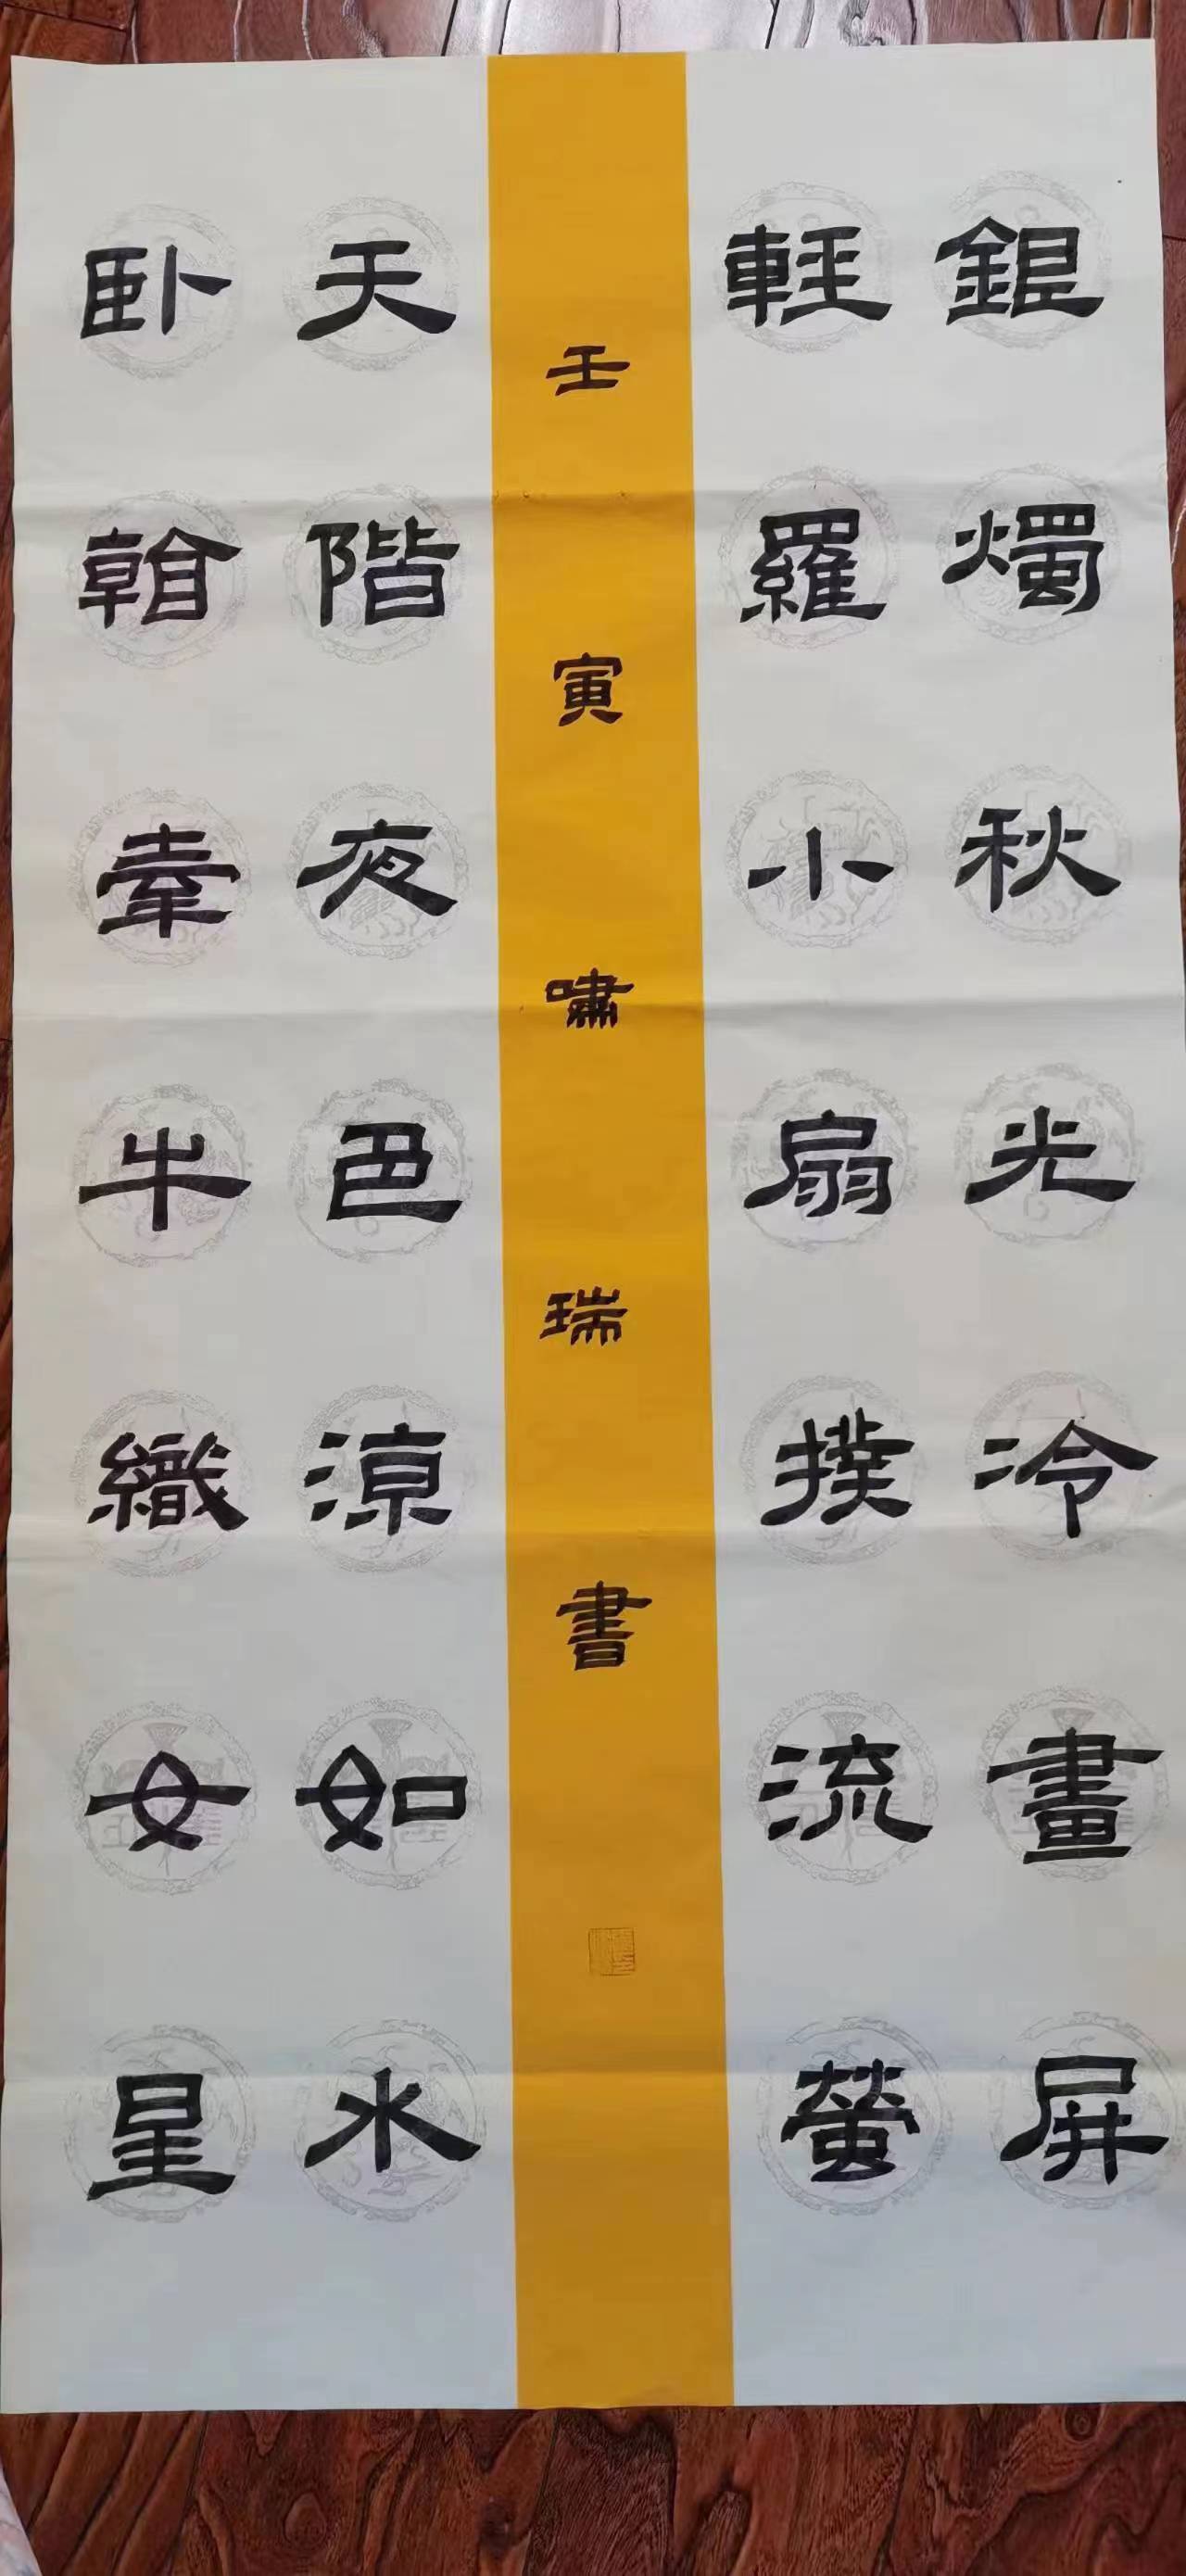 銀燭秋光冷畫屏
輕羅小扇撲流螢
壬寅嘯瑞書
天階夜色涼如水
卧看牽牛織女星